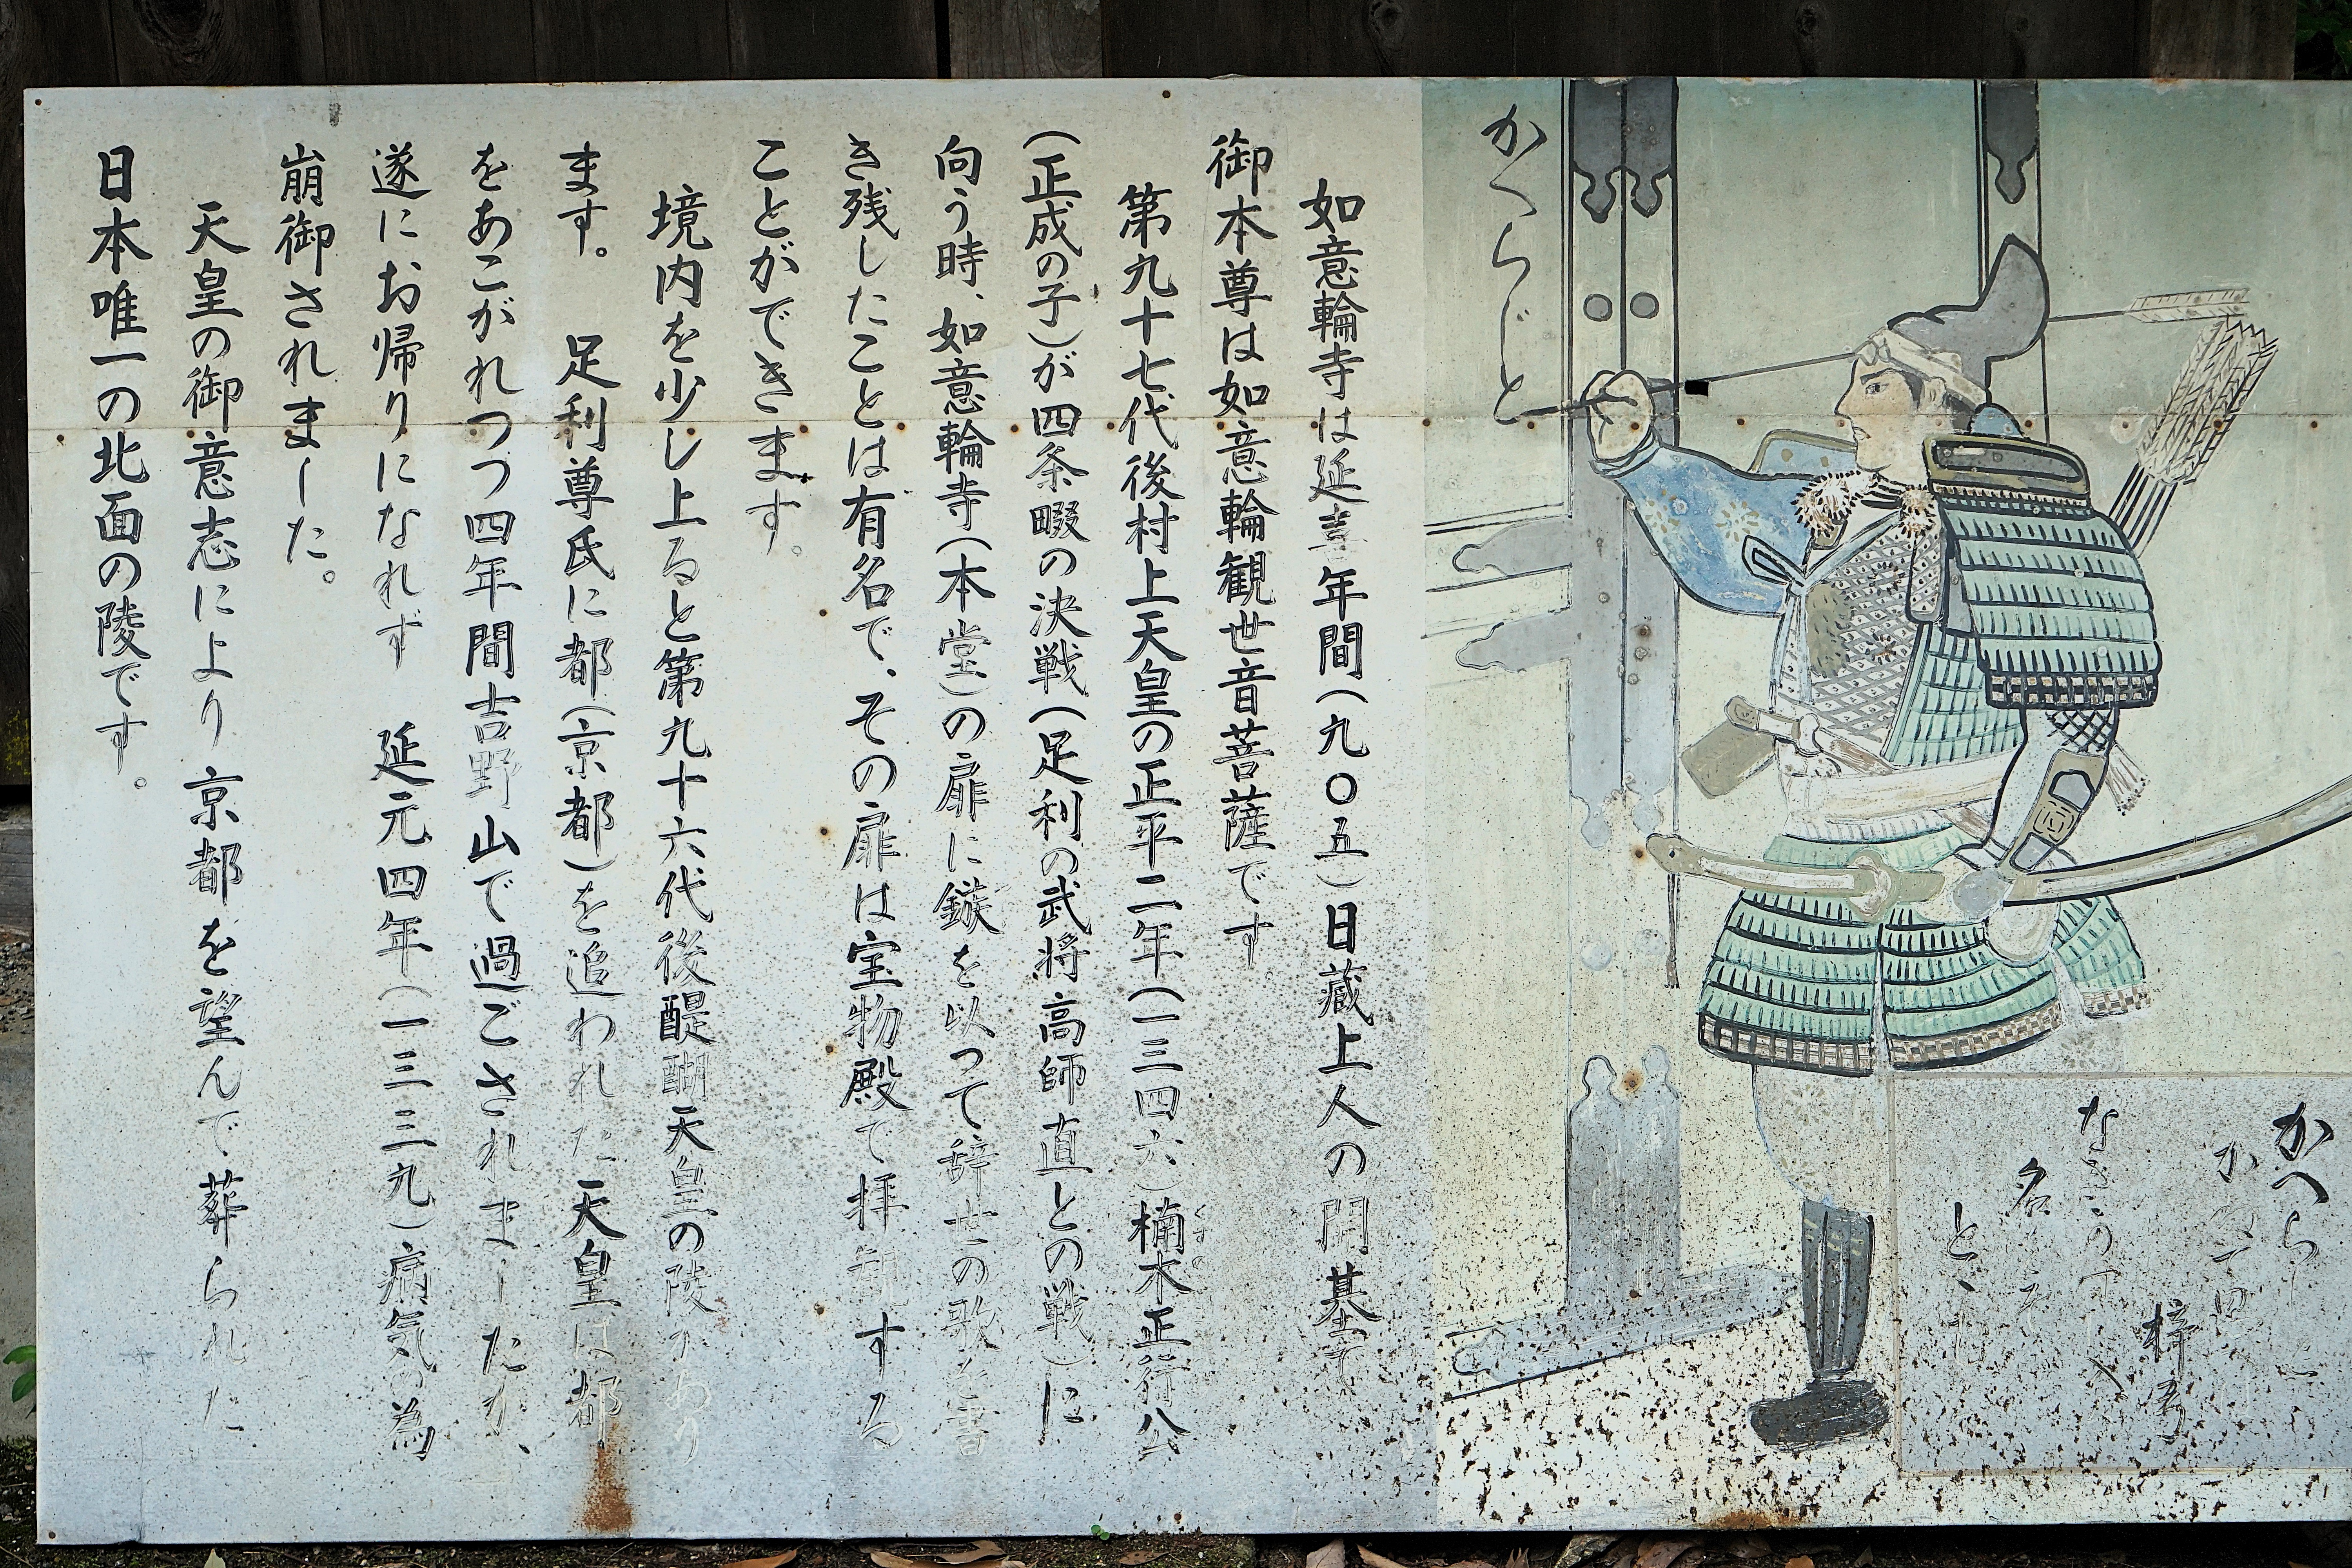 かへらじと
かへらじと
か
梓弓
名
如意輪寺は延喜年間(九〇五)日蔵上人の開基で
御本尊は如意輪観世音菩薩です
第九十七代後村上天皇の正平二年(一三四六)楠木正行公
くすのき
(正成の子)が四条畷の決戦(足利の武将高師直との戦)に
向う時、如意輪寺(本堂)の扉に鏃を以つて辞世の歌を書
き残したことは有名で、その扉は宝物殿で拝観する
ことができます。
境内を少し上ると第九十六代後醍醐天皇の陵があり
ます。 足利尊氏に都(京都)を追われた天皇は都
をあこがれつつ四年間吉野山で過ごされましたが、
遂にお帰りになれず 延元四年(一三三九)病気の為
崩御されました。
天皇の御意志により京都を望んで葬られた
日本唯一の北面の陵です。